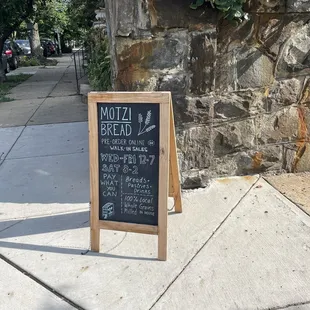 MOTZI
BREAD
PRE-ORDER ONLINE OR
WALK-IN SALES
WED-FRI 12-7
SAT 8-2
PAY
WHAT
YOU
CAN
Breads
Pastries
100% Local
Whole Grains
Milled